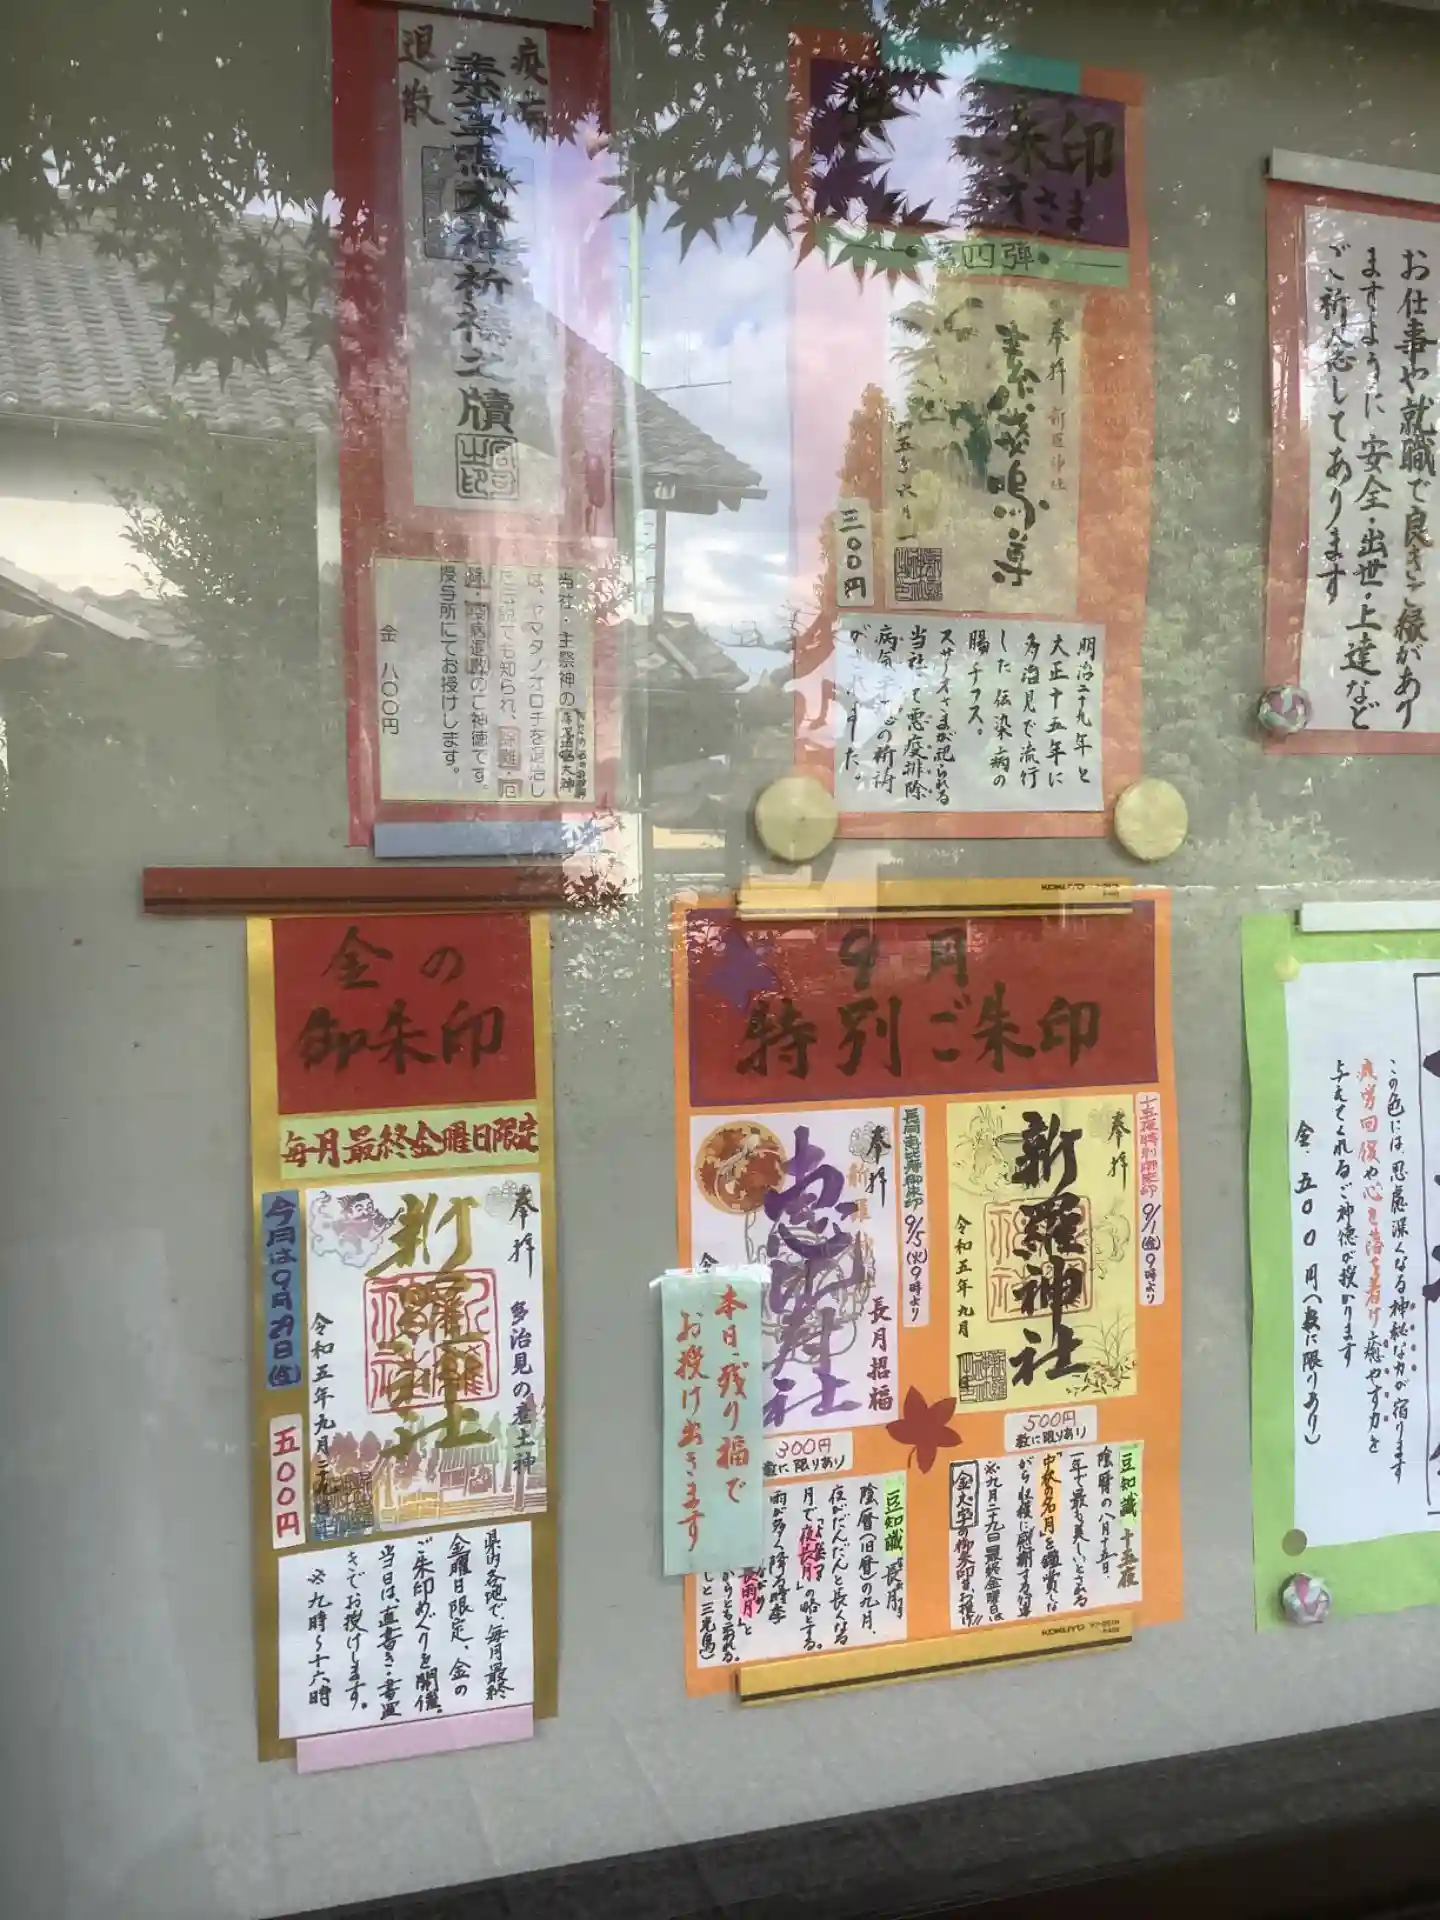 疫病
退散
素戔嗚大神祈祷之牘
当社・主祭神の
は、ヤマタノオロチを退治し
た伝説でも知られ、除難・厄
除・疫病退散のご神徳です。
授与所にてお授けします。
金 八〇〇円
朱印
さま
第四弾
奉拝
新羅神社
素戔嗚尊
五年六月一
三〇〇円
明治二十九年と
大正十五年に
多治見で流行
した伝染病の
腸チフス。
スサノオさまが祀られる
当社にて悪疫排除
病気平癒の祈祷
がされました。
お仕事や就職で良きご縁があり
ますように安全・出世・上達など
ご祈念してあります
金の
御朱印
毎月最終金曜日限定
今月は9月29日(金)
五〇〇円
奉拝
多治見の産土神
新羅神社
令和五年九月二十九日
県内各地で、毎月最終
金曜日限定、金の
ご朱印めぐりを開催。
当日は、直書き・書置
きでお授けします。
※九時~十六時
9月
特別ご朱印
十五夜特別御朱印 9/1(金)9時より
奉拝
新羅神社
令和五年九月
500円
数に限りあり
長月恵比寿御朱印 9/5(火)9時より
奉拝
恵比寿社
長月招福
300円
数に限りあり
本日、残り福で
お授け出きます
豆知識 十五夜
陰暦の八月十五日、
一年で最も美しいとされる
「中秋の名月」を鑑賞しな
がら収穫に感謝する行事
※九月二十九日最終金曜日は
金文字の御朱印をお授け!!
豆知識 長月
陰暦(旧暦)の九月。
夜がだんだんと長くなる
月で「夜長月」の略とする。
雨が多く降る時季
長雨月」と
からとも云われる。
この色には、思慮深くなる神秘な力が宿ります
疲労回復や心を落ち着け癒やす力を
与えてくれるご神徳が授かります
金、五〇〇円(数に限りあり)
KOKUYO
KOKUYO